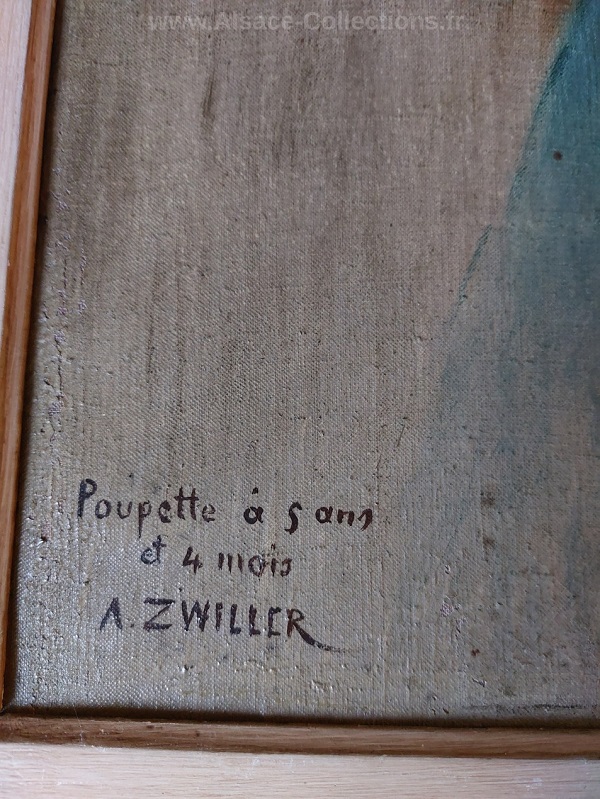 www.Alsace-Collections.fr
Poupette à 5 ans
et 4 mois
A. ZWILLER